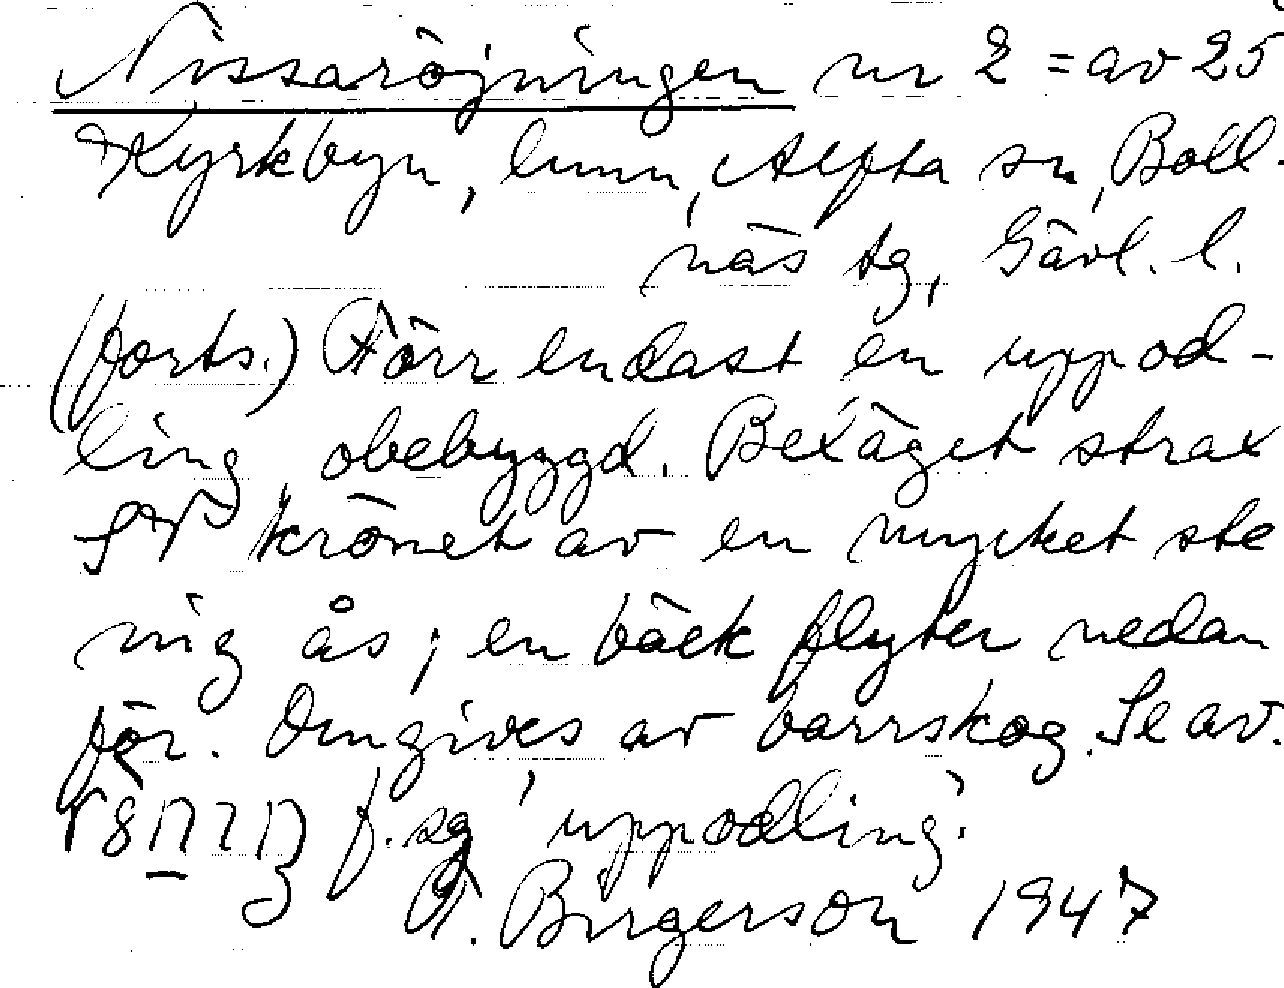 Nissaröjningen nr 2 = av 25
Kyrkbyn, hmn, Alfta sn, Boll-
näs tg, Gävl. l.
(forts.) Förr endast en uppod-
ling, obebyggd. Beläget strax
krönet av en mycket ste
nig ås; en bäck flyter nedan
för. Omgives av barrskog. Se av.
f. sg 'uppodling'.
Birgerson 1947